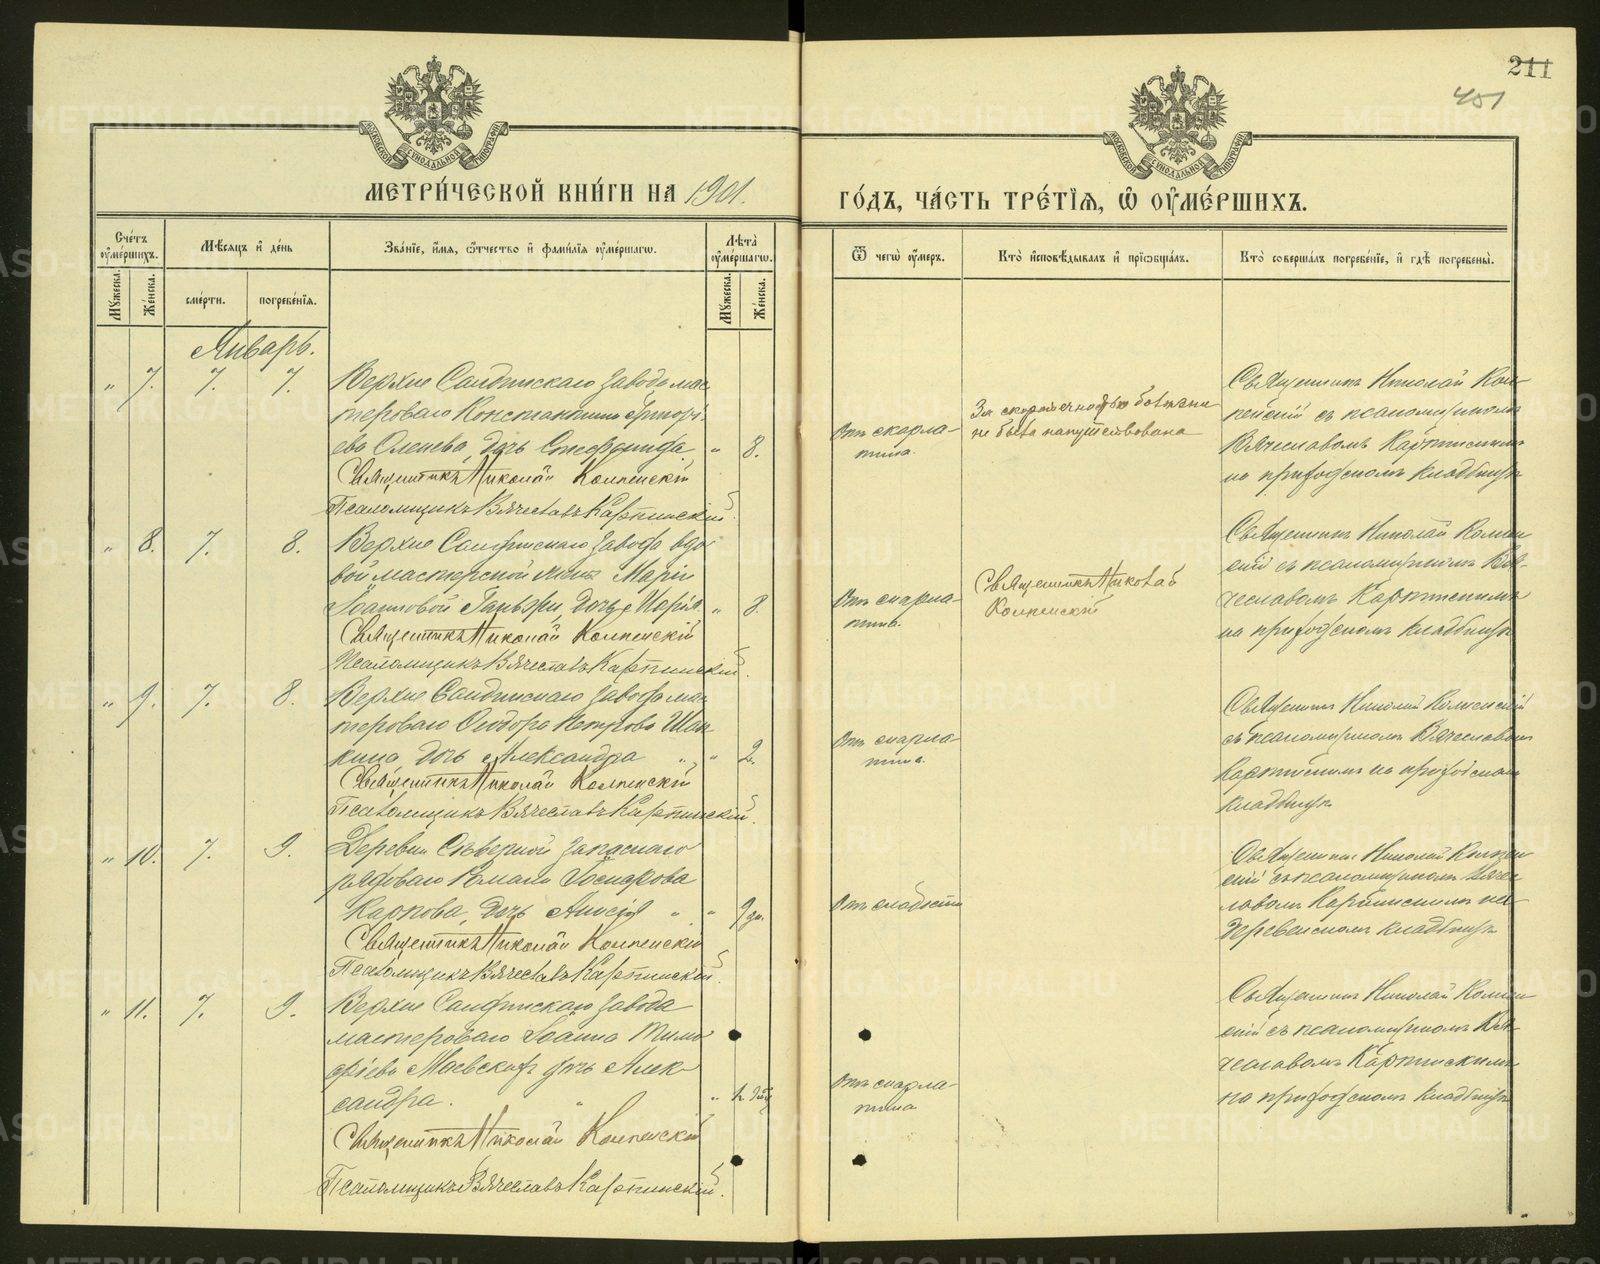 211
451
МОСКОВСКОЙ СѴНОДАЛЬНОЙ ТИПОГРАФІИ
МОСКОВСКОЙ СѴНОДАЛЬНОЙ ТИПОГРАФІИ
МЕТРИ́ЧЕСКОЙ КНИ́ГИ НА 1901.
ГО́ДЪ, ЧА́СТЬ ТРЕ́ТІѦ, Ѡ ОУМЕ́РШИХЪ.
Сче́тъ оумершихъ.
Мѣ́сяцъ и де́нь
Зва́ніе, и́мя, о́тчество и фами́лія оуме́ршагѡ.
Лѣ́та оуме́ршагѡ.
Ѿ чегѡ̀ оу́меръ.
Кто̀ исповѣ́дывалъ и пріѡбща́лъ.
Кто̀ соверша́лъ погребе́ніе, и гдѣ̀ погребены̀.
Мꙋ́жеска.
Же́нска.
сме́рти.
погребе́нія.
Мꙋ́жеска.
Же́нска.
Январь.
" 7. 7. 7.
Верхне Салдинскаго завода мас-
тероваго Константина Григорі-
ева Оленева, дочь " 8.
Священникъ Николай Колпенскій
Псаломщикъ Вячеславъ Карпинскій.
Отъ скарла-
тина.
За скоротечностью болѣзни
не была напутствована
Священникъ Николай Кол-
пенскій съ псаломщикомъ
Вячеславомъ Карпинскимъ
на приходскомъ кладбищѣ
" 8. 7. 8.
Верхне Салдинскаго завода вдо-
вой мастерской жены Маріи
Іоанновой дочь Марія " 8.
Священникъ Николай Колпенскій
Псаломщикъ Вячеславъ Карпинскій.
Отъ скарла-
тина.
Священникъ Николай
Колпенскій
Священникъ Николай Колпен-
скій съ псаломщикомъ Вя-
чеславомъ Карпинскимъ
на приходскомъ кладбищѣ
" 9. 7. 8.
Верхне Салдинскаго завода мас-
тероваго Ѳеодора Петрова Шан-
кина, дочь Александра " " 2.
Священникъ Николай Колпенскій
Псаломщикъ Вячеславъ Карпинскій.
Отъ скарла-
тина.
Священникъ Николай Колпенскій
съ псаломщикомъ Вячеславомъ
Карпинскимъ на приходскомъ
кладбищѣ
" 10. 7. 9.
Деревни Сѣверной запаснаго
рядоваго Романа
Карпова, дочь Анисія " " 9 дн.
Священникъ Николай Колпенскій
Псаломщикъ Вячеславъ Карпинскій.
Отъ слабости
Священникъ Николай Колпен-
скій съ псаломщикомъ Вячес-
лавомъ Карпинскимъ на
деревенскомъ кладбищѣ
" 11. 7. 9.
Верхне Салдинскаго завода
мастероваго Іоанна Тимо-
фѣева дочь Алек-
сандра. " "
Священникъ Николай Колпенскій
Псаломщикъ Вячеславъ Карпинскій.
Отъ скарла-
тина
Священникъ Николай Колпен-
скій съ псаломщикомъ Вя-
чеславомъ Карпинскимъ
на приходскомъ кладбищѣ
METRIKI.GASO-URAL.RU